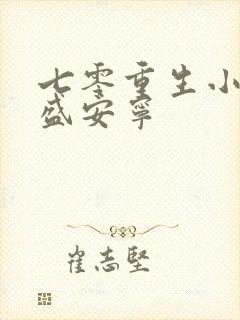 七零重生小
盛安宁
崔志坚